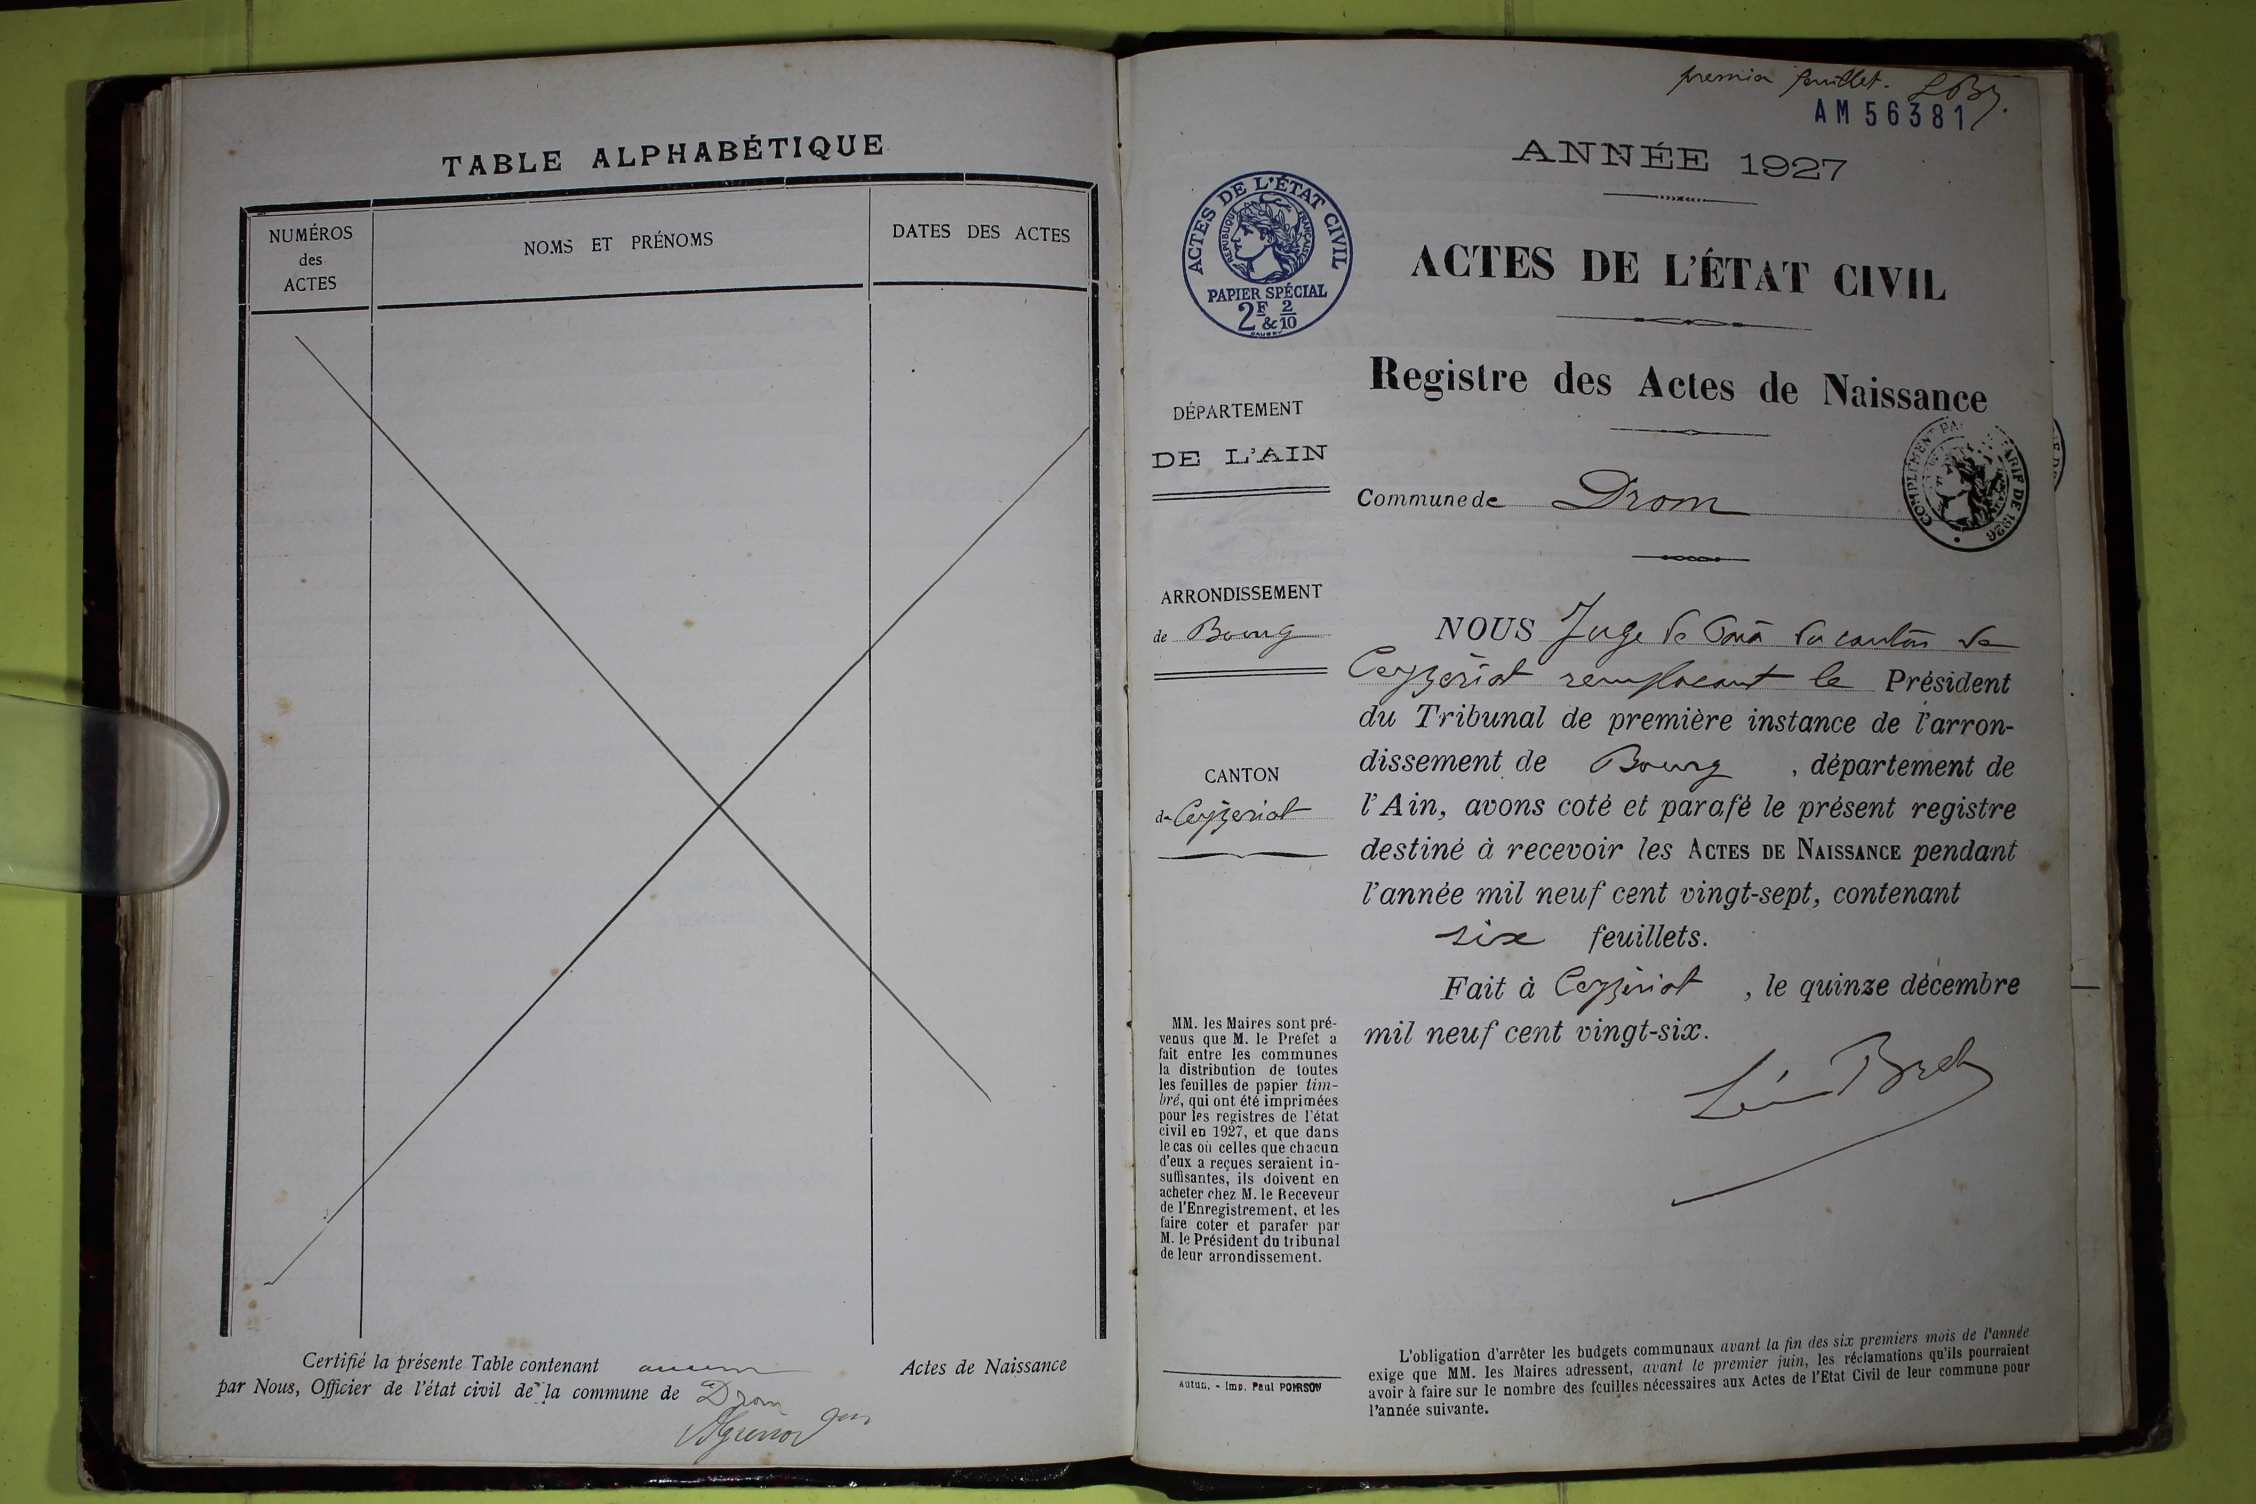 TABLE ALPHABÉTIQUE
NUMÉROS
des
ACTES
NOMS ET PRÉNOMS
DATES DES ACTES
Certifié la présente Table contenant aucun Actes de Naissance
par Nous, Officier de l'état civil de la commune de Drom
premier feuillet.
AM 56381
ANNÉE 1927
ACTES DE L'ÉTAT CIVIL
RÉPUBLIQUE FRANÇAISE
PAPIER SPÉCIAL
2F & 2/10
ACTES DE L'ÉTAT CIVIL
Registre des Actes de Naissance
DÉPARTEMENT
DE L'AIN
Commune de Drom
COMPLÉMENT TARIF DE 1926
ARRONDISSEMENT
de Bourg
CANTON
de Ceyzériat
NOUS Juge de Paix du canton de
Ceyzériat remplaçant le Président
du Tribunal de première instance de l'arron-
dissement de Bourg, département de
l'Ain, avons coté et parafé le présent registre
destiné à recevoir les ACTES DE NAISSANCE pendant
l'année mil neuf cent vingt-sept, contenant
six feuillets.
Fait à Ceyzériat, le quinze décembre
mil neuf cent vingt-six.
MM. les Maires sont pré-
venus que M. le Préfet a
fait entre les communes
la distribution de toutes
les feuilles de papier tim-
bré, qui ont été imprimées
pour les registres de l'état
civil en 1927, et que dans
le cas où celles que chacun
d'eux a reçues seraient in-
suffisantes, ils doivent en
acheter chez M. le Receveur
de l'Enregistrement, et les
faire coter et parafer par
M. le Président du tribunal
de leur arrondissement.
Autun. - Imp. Paul POIRSON
L'obligation d'arrêter les budgets communaux avant la fin des six premiers mois de l'année
exige que MM. les Maires adressent, avant le premier juin, les réclamations qu'ils pourraient
avoir à faire sur le nombre des feuilles nécessaires aux Actes de l'Etat Civil de leur commune pour
l'année suivante.